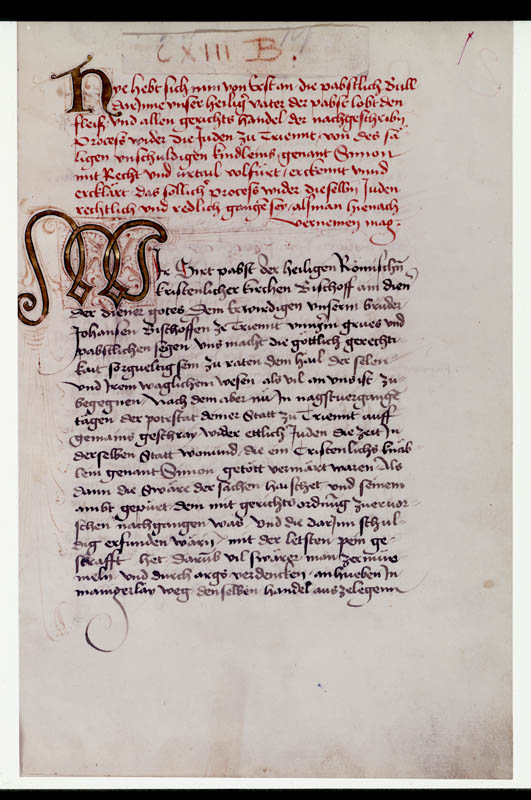 CXIII B.
Hye hebt sich nun von erst an die pabstlich Bull
dar Inne unser heiliger vater der pabst lobt den
fleiß und allen gerichts handel der nachgeschribn
process wider die Juden zu Trienntt von des sä
ligen unschuldigen kindleins genant Simon
mit Recht und urtail volfürt erckennt unnd
ercklärt das söllich process wider dieselbn Juden
rechtlich und redlich gangen sey als man hienach
vernemen mag
Wir Sixt pabst der heiligen Römischn
kristenlicher kirchen Bischoff ain dien
der diener gotes Dem erwirdigen unserm bruder
Johansen Bischoffen ze Trienntt unnsern grues und
pabstlichen segen Uns macht die götlich gerechti
kait sorgveltig sein zu raten dem hail der selen
und irem waglichem wesen als vil an uns ist zu
begegnen Nach dem aber nu In nagstvergangen
tagen der potestat deiner Statt zu Trienntt auff
gemains geschray wider ettlich Juden die zeit In
derselben Statt wonund die ein Cristenlichs knäb
lein genant Simon getött vermärt waren Als
dann die swäre der sachen haischet und seinem
ambt gepürt dem mit gerichts ordnung zu ervor
schen nachgangen was und die dar Inn schul
dig erfunden wärn mit der letsten pein ge
strafft het darumb vil swärer man zermür
meln und durch args verdencken anhueben In
mangerlay weg denselben handel aus zelegenn